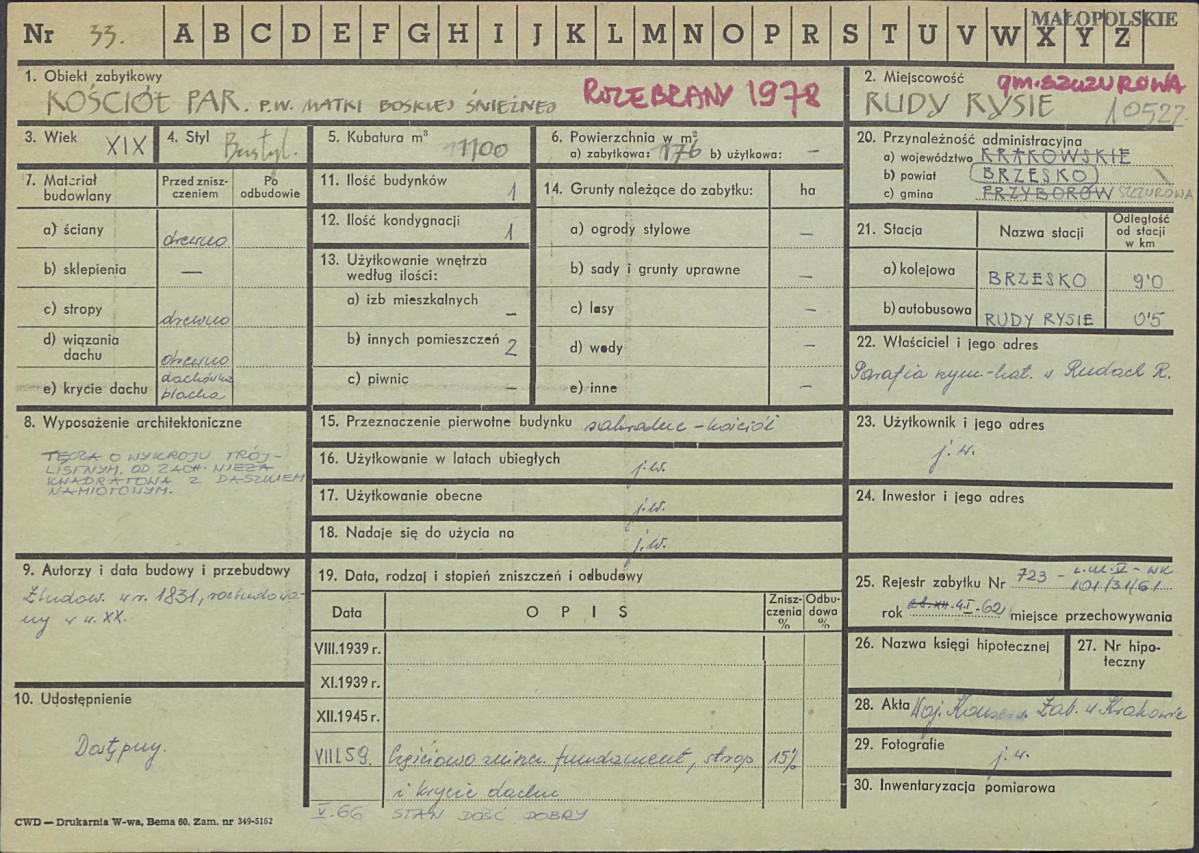 Nr 33. A B C D E F G H I J K L M N O P R S T U V W X Y Z MAŁOPOLSKIE
1. Obiekt zabytkowy
KOŚCIÓŁ PAR. P.W. MATKI BOSKIEJ ŚNIEŻNEJ ROZEBRANY 1978
2. Miejscowość gm. SZCZUROWA
RUDY RYSIE 10522.
3. Wiek XIX
4. Styl Bezstyl.
5. Kubatura m³ 1100
6. Powierzchnia w m²
a) zabytkowa: 176 b) użytkowa: —
7. Materiał budowlany
Przed zniszczeniem
Po odbudowie
a) ściany drewno
b) sklepienia —
c) stropy drewno
d) wiązania dachu drewno
e) krycie dachu dachówka blacha
8. Wyposażenie architektoniczne
TĘCZA O WYKROJU TRÓJ-
LISTNYM. OD ZACH. WIEŻA
KWADRATOWA Z DASZKIEM
NAMIOTOWYM.
9. Autorzy i data budowy i przebudowy
Zbudow. w r. 1831, rozbudowa-
ny w w. XX.
10. Udostępnienie
Dostępny.
11. Ilość budynków 1
12. Ilość kondygnacji 1
13. Użytkowanie wnętrza
według ilości:
a) izb mieszkalnych —
b) innych pomieszczeń 2
c) piwnic —
14. Grunty należące do zabytku: ha
a) ogrody stylowe —
b) sady i grunty uprawne —
c) lasy —
d) wody —
e) inne —
15. Przeznaczenie pierwotne budynku sakralne - kościół
16. Użytkowanie w latach ubiegłych j.w.
17. Użytkowanie obecne j.w.
18. Nadaje się do użycia na j.w.
19. Data, rodzaj i stopień zniszczeń i odbudowy
Data OPIS Zniszczenia % Odbudowa %
VIII.1939 r.
XI.1939 r.
XII.1945 r.
VIII.59. Częściowo zniszcz. fundament, strop 15%
i krycie dachu
V.66 STAN DOŚĆ DOBRY
20. Przynależność administracyjna
a) województwo KRAKOWSKIE
b) powiat BRZESKO
c) gmina PRZYBORÓW SZCZUROWA
21. Stacja Nazwa stacji Odległość od stacji w km
a) kolejowa BRZESKO 9'0
b) autobusowa RUDY RYSIE 0'5
22. Właściciel i jego adres
Parafia rzym-kat. w Rudach R.
23. Użytkownik i jego adres
j.w.
24. Inwestor i jego adres
25. Rejestr zabytku Nr 723 -
101/31/61
rok 4.I.62 miejsce przechowywania
26. Nazwa księgi hipotecznej
27. Nr hipoteczny
28. Akta Woj. Konserw. Zab. w Krakowie
29. Fotografie j.w.
30. Inwentaryzacja pomiarowa
CWD — Drukarnia W-wa, Bema 60. Zam. nr 349-5162